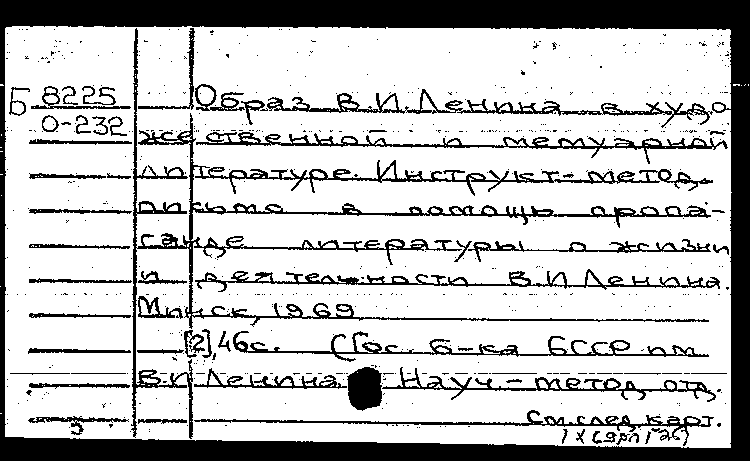 Б 8225 Образ В.И.Ленина в худо
0-232 жественной и мемуарной
литературе. Инструкт-метод.
письмо в помощь пропа-
ганде литературы о жизни
и деятельности В.И Ленина.
Минск, 1969
[2], 46с. (Гос. б-ка БССР им.
В.И Ленина Науч-метод. отд.
См.след.карт.